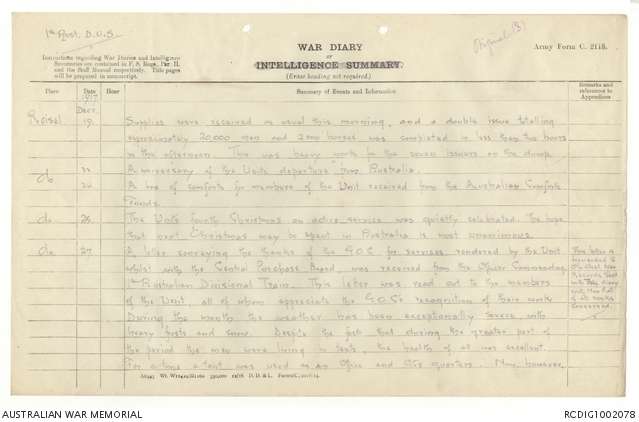 1st Aust. D.O.S.
Original (3)
WAR DIARY
or
INTELLIGENCE SUMMARY.
(Erase heading not required.)
Army Form C. 2118.
Instructions regarding War Diaries and Intelligence
Summaries are contained in F. S. Regs., Part II.
and the Staff Manual respectively. Title pages
will be prepared in manuscript.
Place Date Hour Summary of Events and Information Remarks and references to Appendices
1917
Decr.
19. Supplies were received as usual this morning, and a double issue totalling
approximately 20,000 men and 2000 horses was completed in less than two hours
in the afternoon. This was heavy work for the seven issuers on the dump.
do Anniversary of the Units departure from Australia.
24 A box of comforts for members of the Unit received from the Australian Comforts
Funds.
do 25 The Units fourth Christmas on active service was quietly celebrated. The hope
that next Christmas may be spent in Australia is most unanimous.
do 27 A letter conveying the thanks of the G.O.C. for services rendered by the Unit
whilst with the Central Purchase Board was received from the Officer Commanding
1st Australian Divisional Train. This letter was read out to the members
of the Unit all of whom appreciate the G.O.C's recognition of their work.
This letter is
forwarded to
Records
with this diary
During the month the weather has been exceptionally severe, with
heavy frosts and snow. Despite the fact that during the greater part of
the period the men were living in tents, the health of all was excellent.
For a time a tent was used as an Office and O's quarters. Now, however,